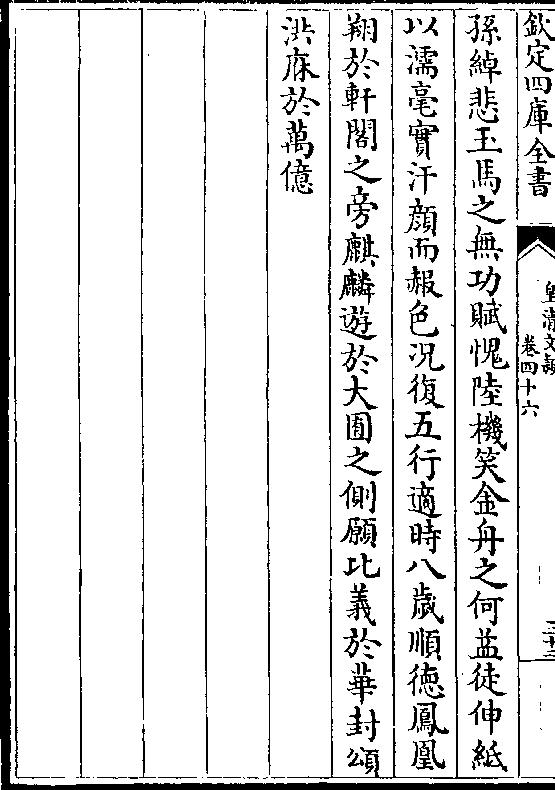 欽定四庫全書
卷四十六
孫綽悲玉馬之無功賦愧陸機笑金舟之何益徒伸紙
以濡毫實汗顏而赧色况復五行適時八歲順德鳳凰
翔於軒閣之旁麒麟遊於大囿之側願比義於華封頌
洪庥於萬億